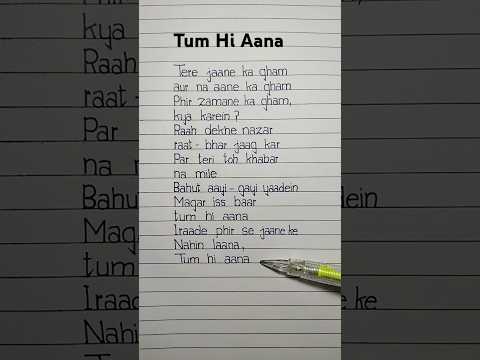 Tum Hi Aana
Tere jaane ka gham
aur na aane ka gham
Phir zamane ka gham,
kya karein?
Raah dekhne nazar
raat-bhar jaag kar
Par teri toh khabar
na mile
Bahut aayi-gayi yaadein
Magar iss baar
tum hi aana
Iraade phir se jaane ke
Nahin laana,
Tum hi aana